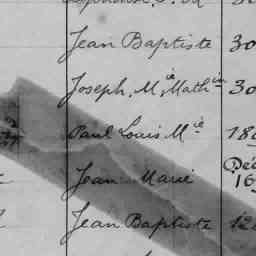 Jean Baptiste 30
Joseph, M.ie Math.in 30
Paul Louis M.ie 18
Jean Marie Déc 16
Jean Baptiste 12